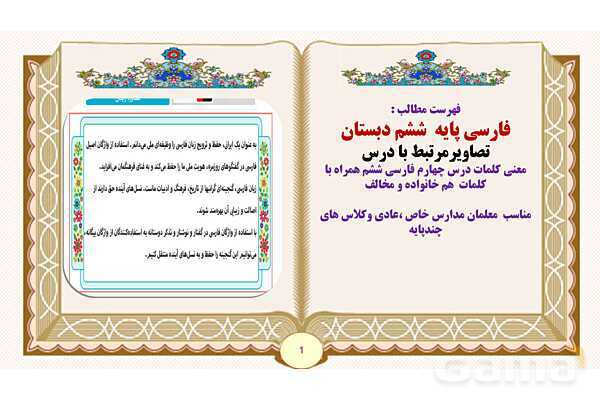 فهرست مطالب :
فارسی پایه ششم دبستان
تصاویرمرتبط با درس
معنی کلمات درس چهارم فارسی ششم همراه با
کلمات هم خانواده و مخالف
مناسب معلمان مدارس خاص ،عادی وکلاس های
چندپایه
به عنوان یک ایران، حفظ و ترویج زبان فارسی را وظیفه‌ای ملی می‌دانم. استفاده از واژگان اصیل
فارسی در گفتگوهای روزمره، هویت ملی ما را حفظ می‌کند و به غنای فرهنگمان می‌افزاید.
زبان فارسی، گنجینه‌ای گرانبها از تاریخ، فرهنگ و ادبیات ماست. نسل‌های آینده حق دارند از
اصالت و زیبای آن بهره‌مند شوند.
با استفاده از واژگان فارسی در گفتار و نوشتار و تذکر دوستانه به استفاده‌کنندگان از واژگان بیگانه،
می‌توانیم این گنجینه را حفظ و به نسل‌های آینده منتقل کنیم.
1
Gama